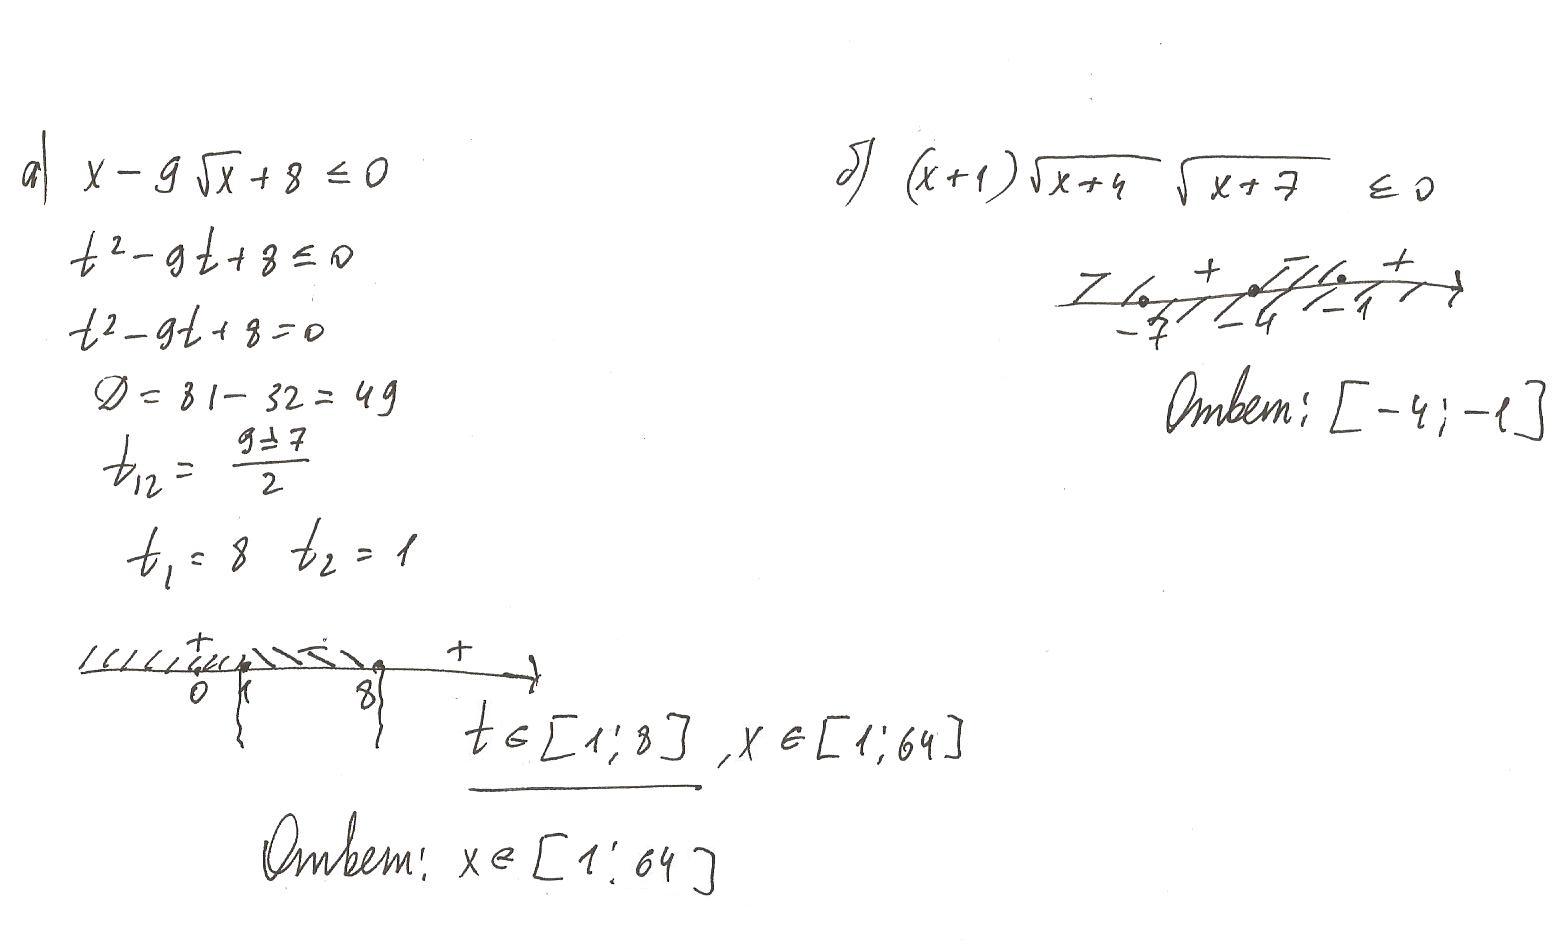 а) x - 9√x + 8 ≤ 0
t² - 9t + 8 ≤ 0
t² - 9t + 8 = 0
D = 81 - 32 = 49
t₁₂ = (9 ± 7)/2
t₁ = 8 t₂ = 1
+ - +
0 1 8
t ∈ [1; 8], x ∈ [1; 64]
Ответ: x ∈ [1; 64]
б) (x+1)√(x+4) √(x+7) ≤ 0
- + - +
-7 -4 -1
Ответ: [-4; -1]